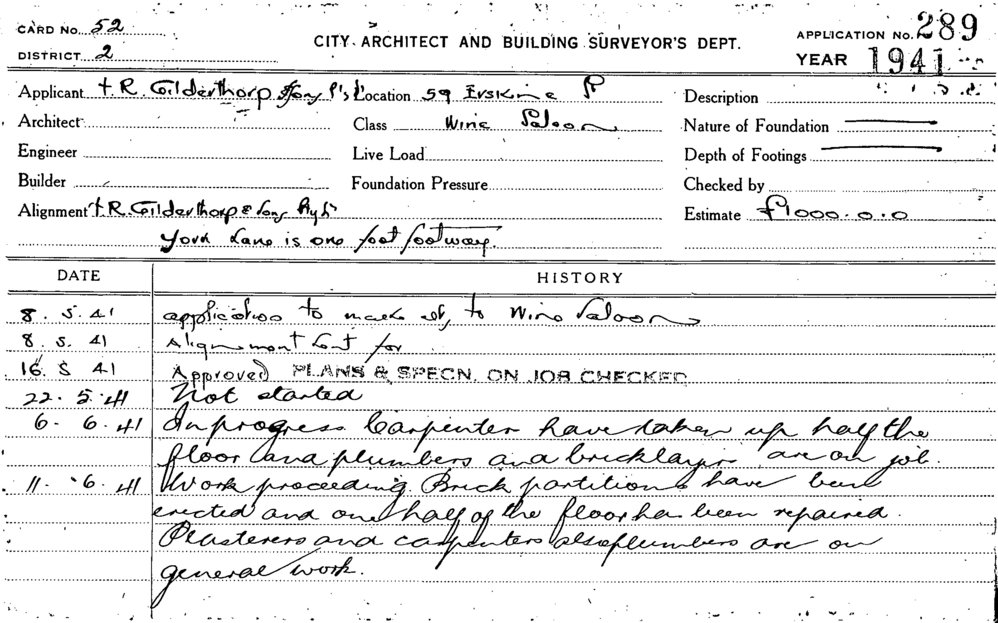 CARD No. 52
DISTRICT 2
CITY ARCHITECT AND BUILDING SURVEYOR'S DEPT.
APPLICATION No. 289
YEAR 1941
Applicant R. Gilderthorp Location 59 Erskine St
Description
Architect Class Wine Saloon
Nature of Foundation
Engineer Live Load
Depth of Footings
Builder Foundation Pressure
Checked by
Alignment R. Gilderthorp & Sons
Estimate £1000.0.0
York Lane is one foot footway.
DATE HISTORY
8. 5. 41 application to to Wine Saloon
8. 5. 41 Alignment sent for
16. 5 41 Approved PLANS & SPECN. ON JOB CHECKED
22. 5. 41 Not started
6. 6. 41 In progress Carpenter have taken up half the
floor and plumbers and bricklayers are on job.
11. 6. 41 Work proceeding. Brick partitions have been
erected and one half of the floor has been repaired.
Plasterers and carpenters also plumbers are on
general work.